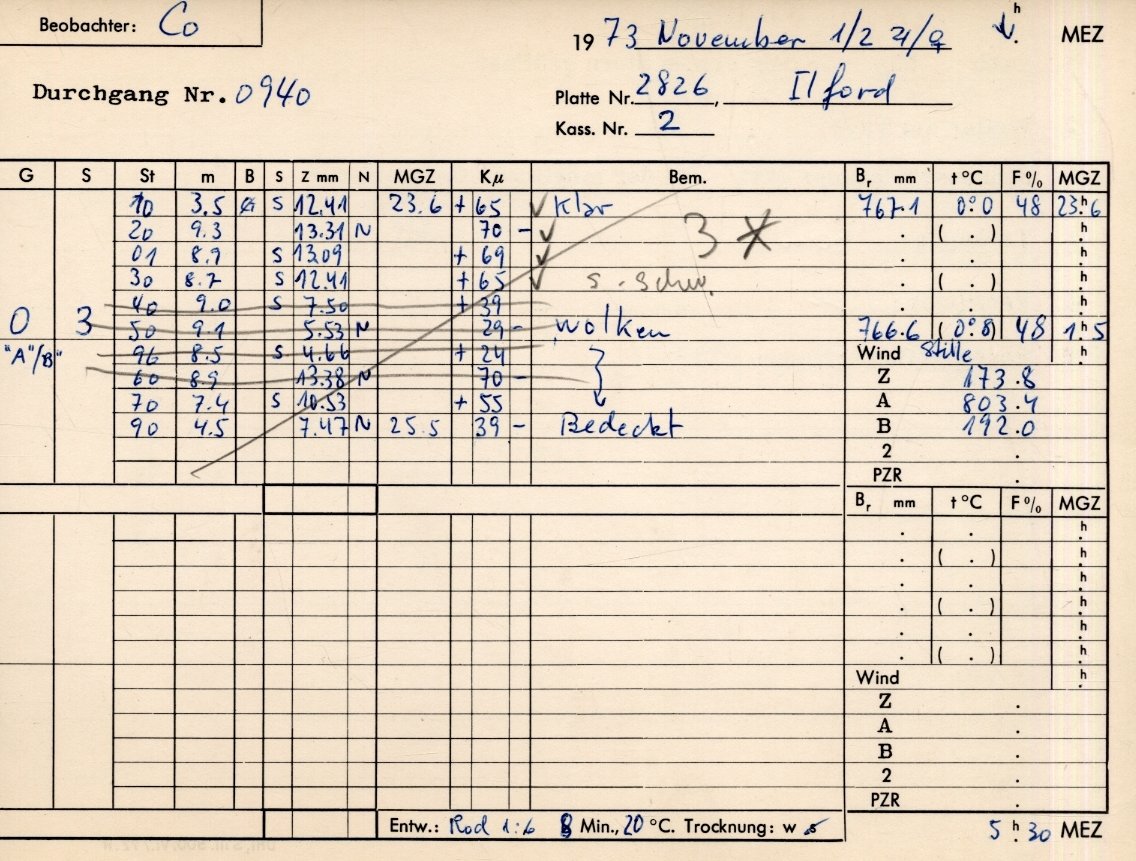 Beobachter: Co
1973 November 1/2 ♃/♀ h. MEZ
Durchgang Nr. 0940
Platte Nr. 2826, Ilford
Kass. Nr. 2
G S St m B S Z mm N MGZ Kµ Bem. Br mm t °C F % MGZ
10 3.5 S 12.41 23.6 + 65 ✓ Klar 767.1 0°.0 48 23.h6
20 9.3 13.31 N 70 - ✓ 3 * . ( . ) .h
01 8.9 S 13.09 + 69 ✓ . . .h
30 8.7 S 12.41 + 65 ✓ s. schw. . ( . ) .h
40 9.0 S 7.50 + 39 . . .h
0 3 50 9.1 5.53 N 29 - Wolken 766.6 (0°.8) 48 1.h5
"A"/B" 96 8.5 S 4.66 + 24 Wind Stille .h
60 8.9 13.38 N 70 - Z 173.8
70 7.4 S 10.53 + 55 A 803.4
90 4.5 7.47 N 25.5 39 - Bedeckt B 192.0
2 .
PZR .
Br mm t °C F % MGZ
. . .h
. ( . ) .h
. . .h
. ( . ) .h
. . .h
. ( . ) .h
Wind .h
Z .
A .
B .
2 .
PZR .
Entw.: Rod 1:6 8 Min., 20 °C. Trocknung: w s
5 h. 30 MEZ